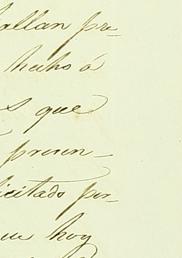 allan pre-
hecho ó
s que
proven-
licitado por
que hoy